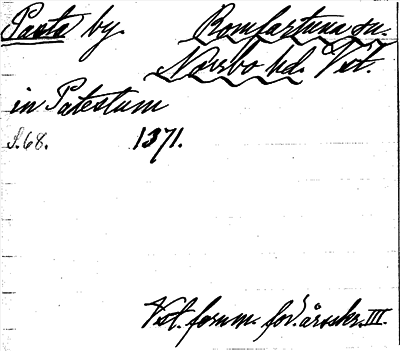 Pasta by. Romfartuna sn.
Norrbo hd. Vstl.
in Patestum
S. 68. 1371.
Vstl. fornm. för. årsskr. III.